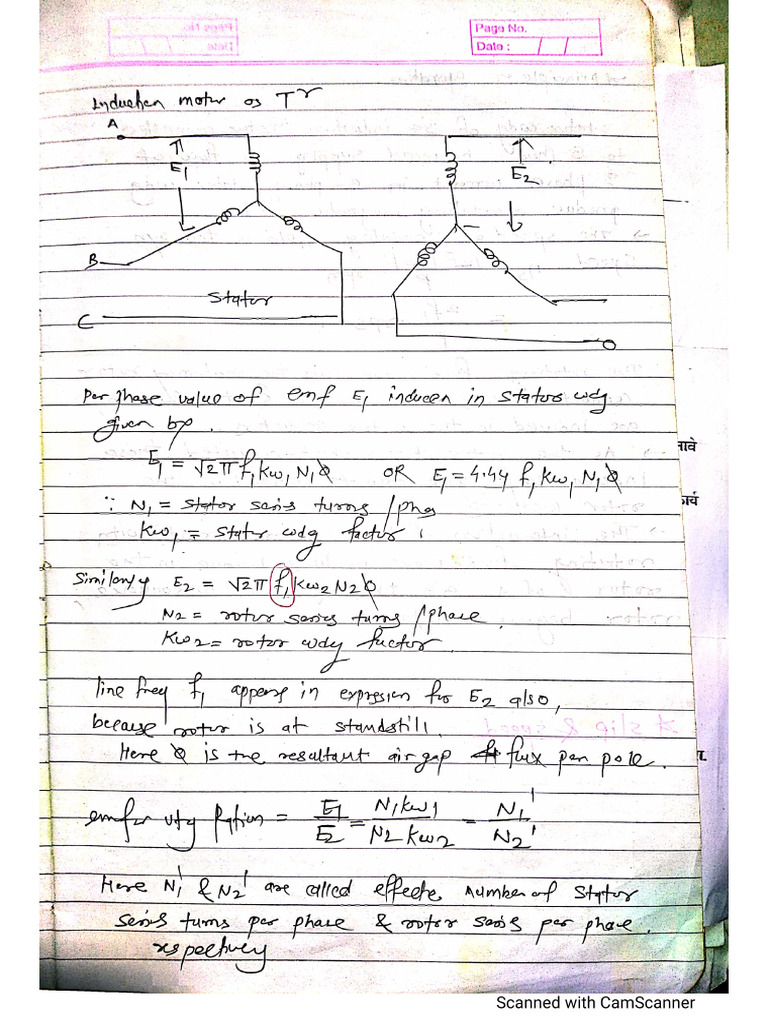 Page No.
Date : / /
Induction motor as Tr
A
E1
E2
B
Stator
C
Per phase value of emf E1 inducen in stator wdg
given by.
E1 = √2π f1 Kw1 N1 Φ OR E1 = 4.44 f1 Kw1 N1 Φ
∵ N1 = stator series turns /pha
Kw1 = stator wdg factor
Similarly E2 = √2π f1 Kw2 N2 Φ
N2 = rotor series turns /phase.
Kw2 = rotor wdg factor.
line freq f1 appears in expresion for E2 also,
because rotor is at standstill.
Here Φ is the resultant air gap flux per pole.
emf or vtg Ration = E1/E2 = N1 Kw1/N2 Kw2 = N1'/N2'
Here N1' & N2' are called effecte number of stator
series turns per phase & rotor series per phase.
respectively
Scanned with CamScanner